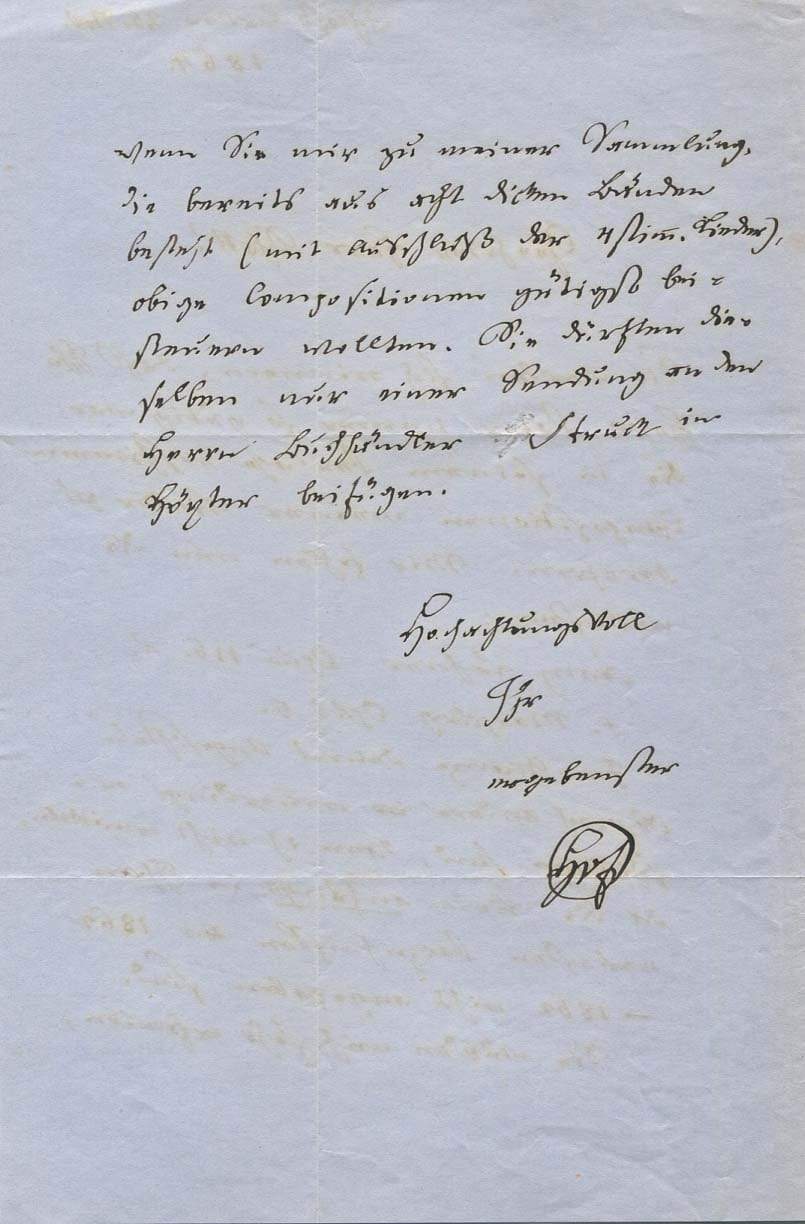 wenn Sie mir zu meiner Sammlung,
die bereits aus acht dicken Bänden
besteht (mit Ausschluß der 4stim̄. Lieder),
obige Compositionen gütigst bei-
steuern wollten. Sie dürften die-
selben nur einer Sendung an den
Herrn Buchhändler in
Höxter beifügen.
Hochachtungsvoll
Ihr
ergebenster
HvF